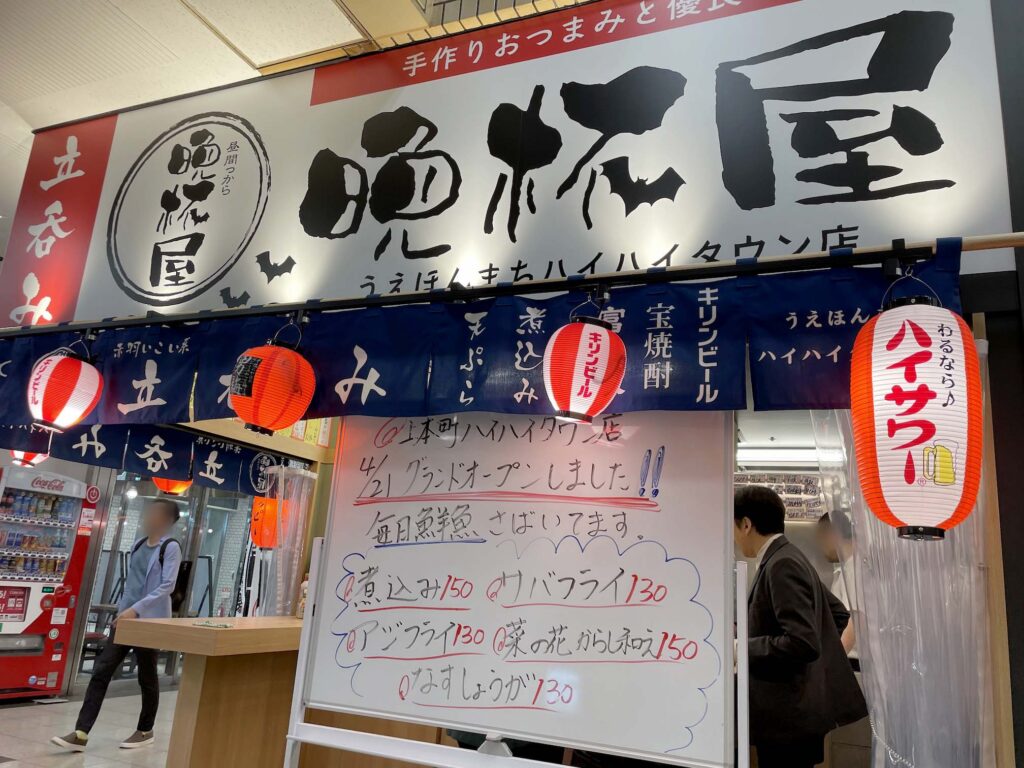 手作りおつまみと優良
立呑み
昼間っから
晩杯屋
晩杯屋
うえほんまちハイハイタウン店
赤羽いこい系
立呑み
天ぷら
煮込み
宝焼酎
キリンビール
うえほん
ハイハイ
キリンビール
キリンビール
わるなら♪
ハイサワー®
み
呑
立
Coca-Cola
@上本町ハイハイタウン店
4/21 グランドオープンしました!!
毎日鮮魚さばいてます。
煮込み150
サバフライ130
アジフライ130
菜の花からし和え150
なすしょうが130